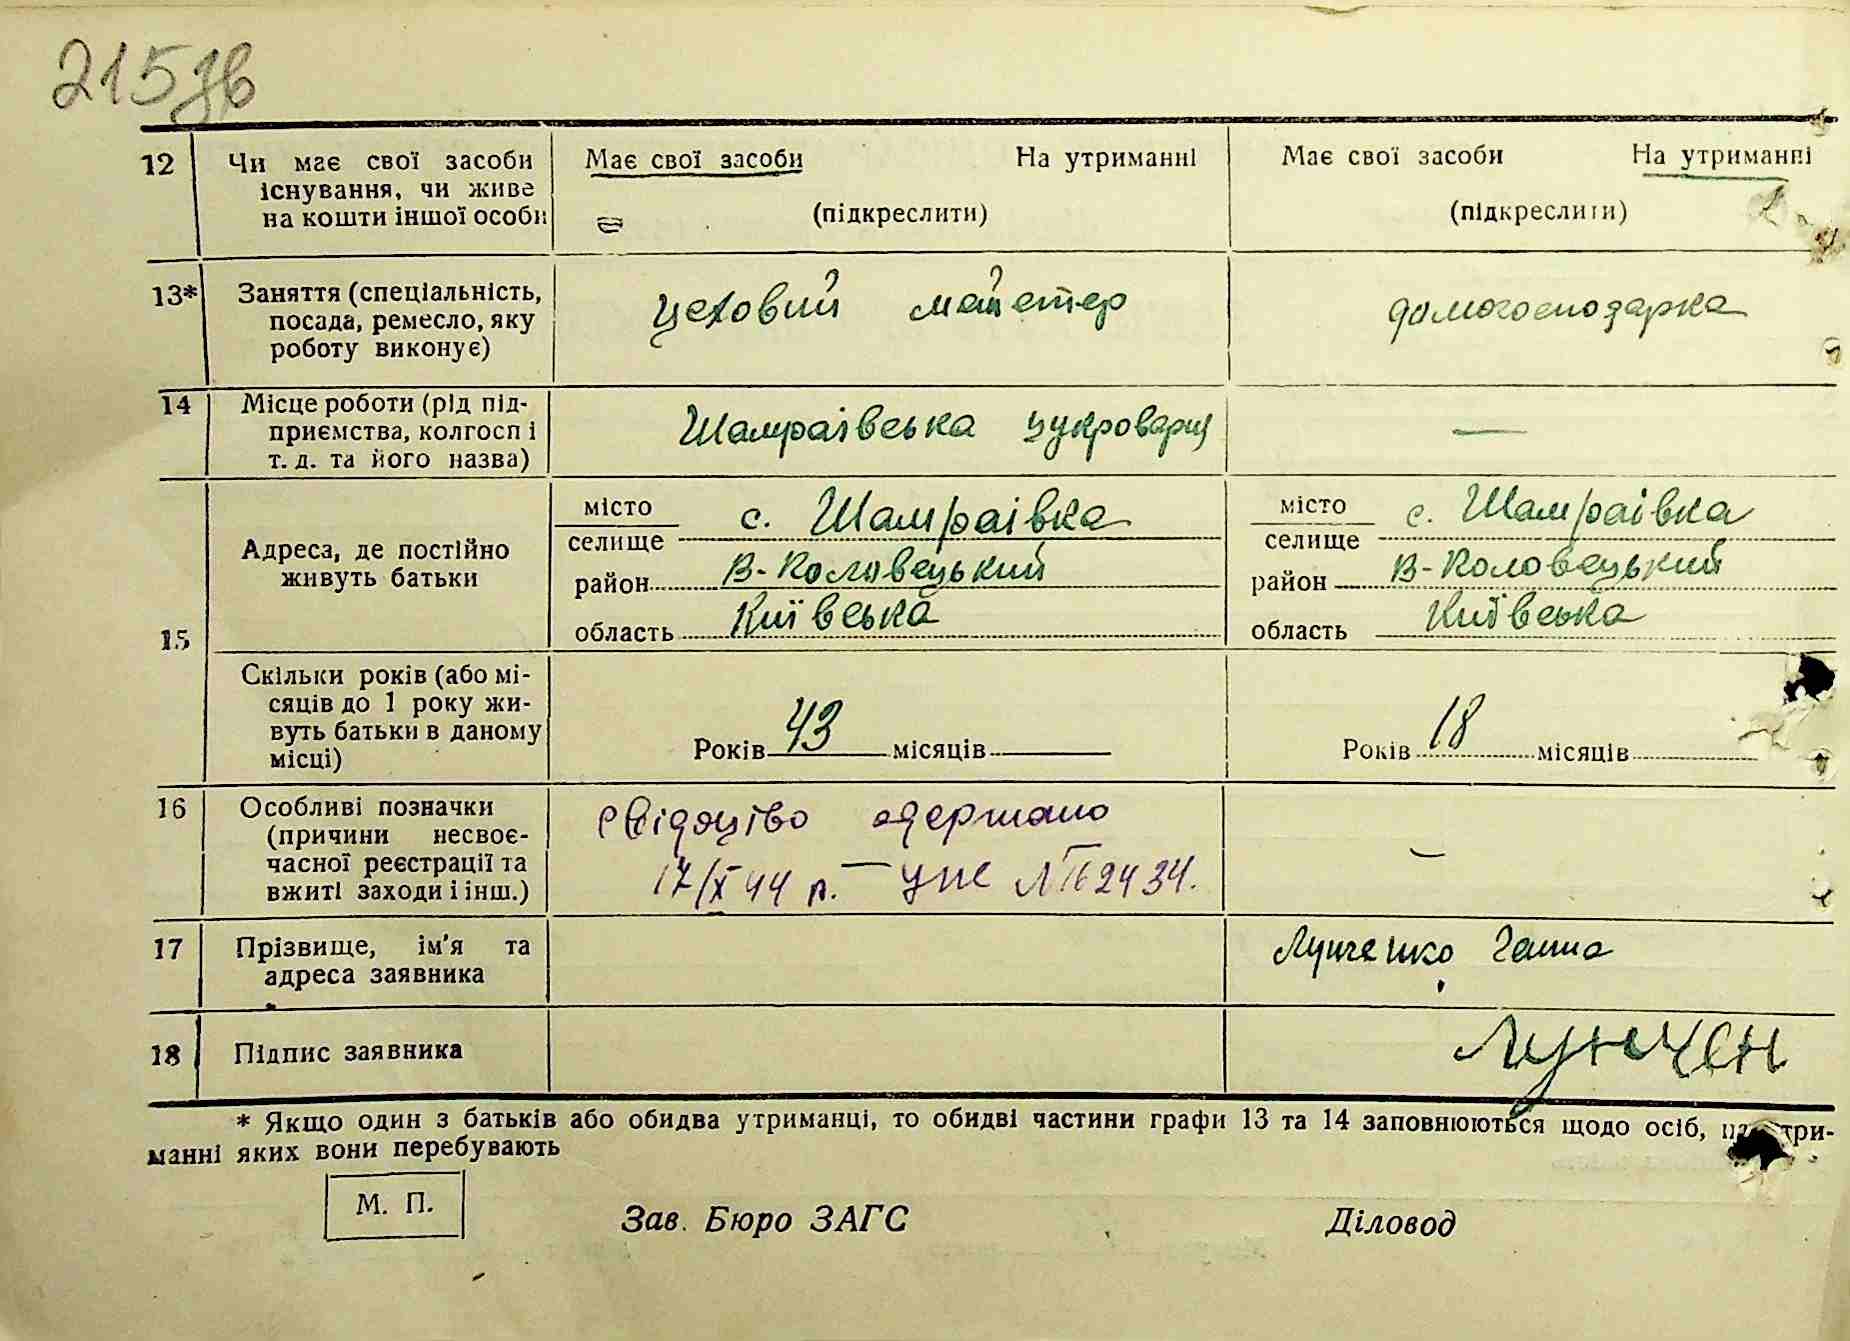 215зв
12 Чи має свої засоби існування, чи живе на кошти іншої особи
Має свої засоби На утриманні
(підкреслити)
Має свої засоби На утриманні
(підкреслити)
13* Заняття (спеціальність, посада, ремесло, яку роботу виконує)
цеховий майстер
домогосподарка
14 Місце роботи (рід підприємства, колгосп і т. д. та його назва)
Шамраівська цукроварня
—
15 Адреса, де постійно живуть батьки
місто селище с. Шамраівка
район В-Половецький
область Київська
місто селище с. Шамраівка
район В-Половецький
область Київська
Скільки років (або місяців до 1 року живуть батьки в даному місці)
Років 43 місяців
Років 18 місяців
16 Особливі позначки (причини несвоєчасної реєстрації та вжиті заходи і інш.)
свідоцтво одержано
17/X 44 р. — № 162434.
—
17 Прізвище, ім'я та адреса заявника
Лунченко Ганна
18 Підпис заявника
Лунчен
* Якщо один з батьків або обидва утриманці, то обидві частини графи 13 та 14 заповнюються щодо осіб, на утри-
манні яких вони перебувають
М. П.
Зав. Бюро ЗАГС
Діловод